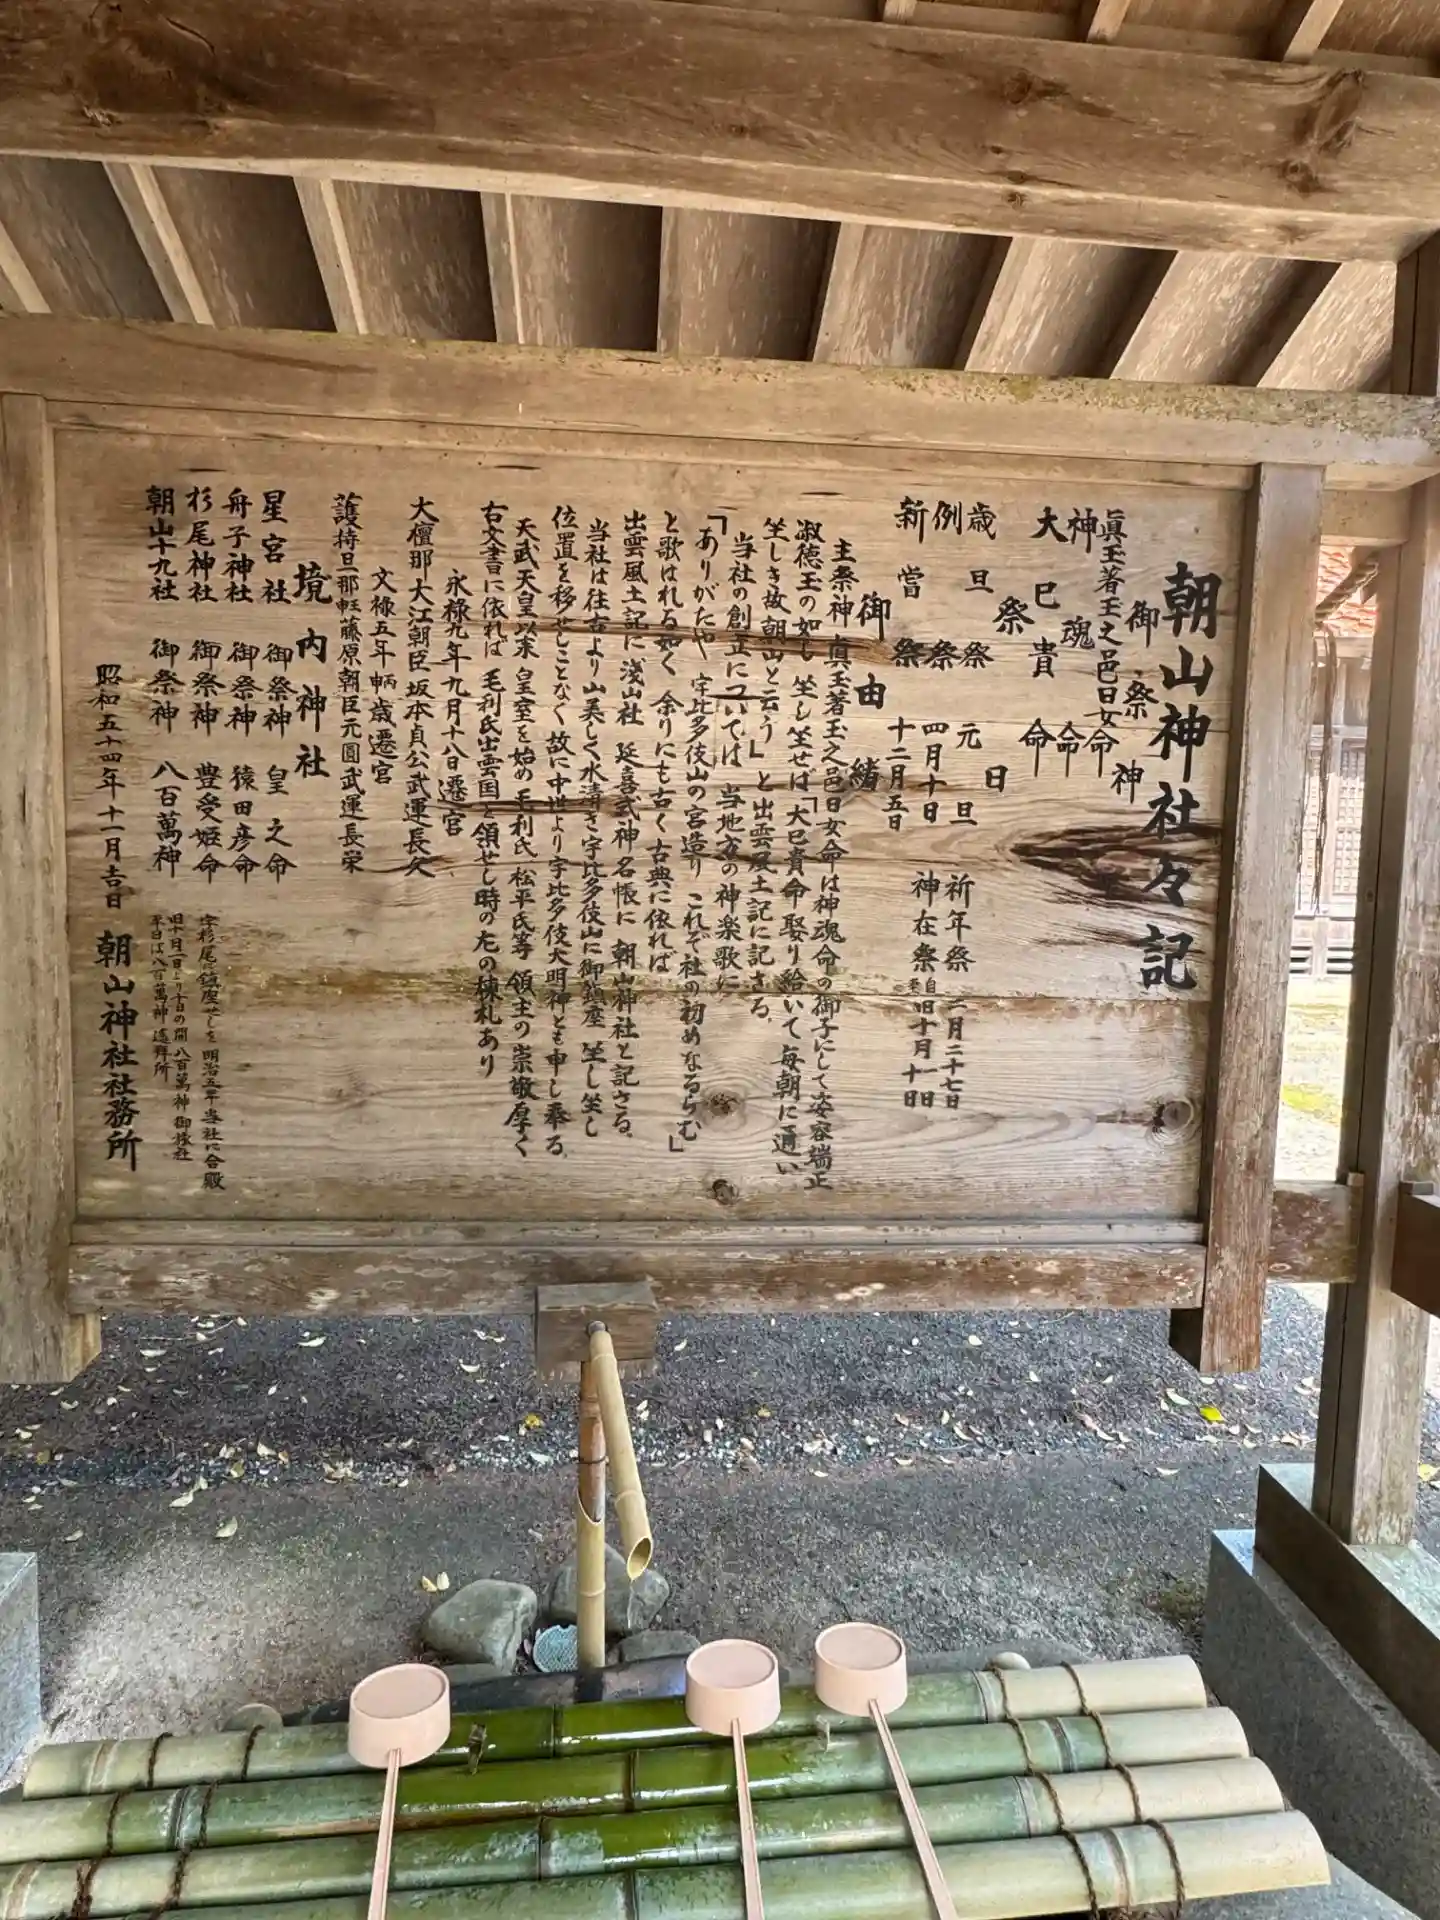 朝山神社々記
御祭神
眞玉著玉之邑日女命
神魂命
大巳貴命
祭日
歳旦祭 元旦 祈年祭 二月二十七日
例祭 四月十日 神在祭 自旧十月一日 至十日
新嘗祭 十二月五日
御由緒
主祭神 眞玉著玉之邑日女命は神魂命の御子にして姿容端正
淑徳玉の如し 坐し坐せば「大巳貴命娶り給いて毎朝に通い
坐しき故朝山と云う」と出雲風土記に記さる、
当社の創立については 当地方の神楽歌に
「ありがたや 宇比多伎山の宮造り これぞ社の初めなるらむ」
と歌はれる如く 余りにも古く古典に依れば
出雲風土記に浅山社 延喜式神名帳に 朝山神社と記さる、
当社は往古より山美しく水清き宇比多伎山に御鎮座 坐し坐し
位置を移せしことなく故に中世より宇比多伎大明神とも申し奉る、
天武天皇以来 皇室を始め毛利氏 松平氏等 領主の崇敬厚く
古文書に依れば 毛利氏出雲国を領せし時の左の棟札あり
永禄九年九月十八日遷宮
大檀那 大江朝臣坂本貞公武運長久
文禄五年丙申歳遷宮
護持旦那 藤原朝臣元圓武運長栄
境内神社
星宮社 御祭神 皇之命
舟子神社 御祭神 猿田彦命
杉尾神社 御祭神 豊受姫命 字杉尾に鎮座せしを 明治五年 当社に合殿
朝山十九社 御祭神 八百萬神 旧十月一日より十日の間 八百萬神 御旅社
平日は八百萬神 遙拜所
昭和五十四年十一月吉日 朝山神社社務所